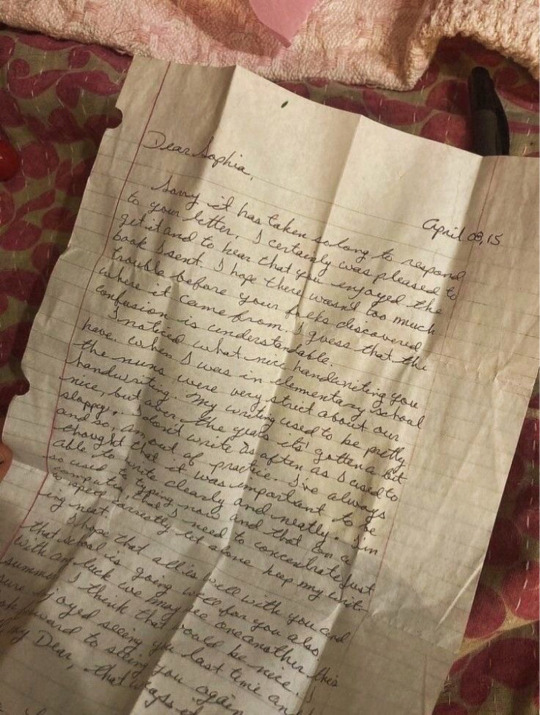 Dear Sophia,
April 09, 15
Sorry it has taken so long to respond
to your letter. I certainly was pleased to
get it and to hear that you enjoyed the
book I sent. I hope there wasn't too much
trouble before your folks discovered
where it came from. I guess that the
confusion is understandable.
I noticed what nice handwriting you
have. When I was in elementary school
the nuns were very strict about our
handwriting. My writing used to be pretty
nice, but over the years its' gotten a bit
sloppy. I don't write as often as I used to
and so, am out of practice. I've always
thought that it was important to be
able to write clearly and neatly. I'm
so used to typing now and that on a
computer, that I need to concentrate just
to spell correctly let alone keep my writ-
ing neat.
I hope that all is well with you and
that school is going well for you also
With any luck we may see one another this
summer. I think that would be nice. I
sure enjoyed seeing you last time an
look forward to seeing you again
my Dear, that